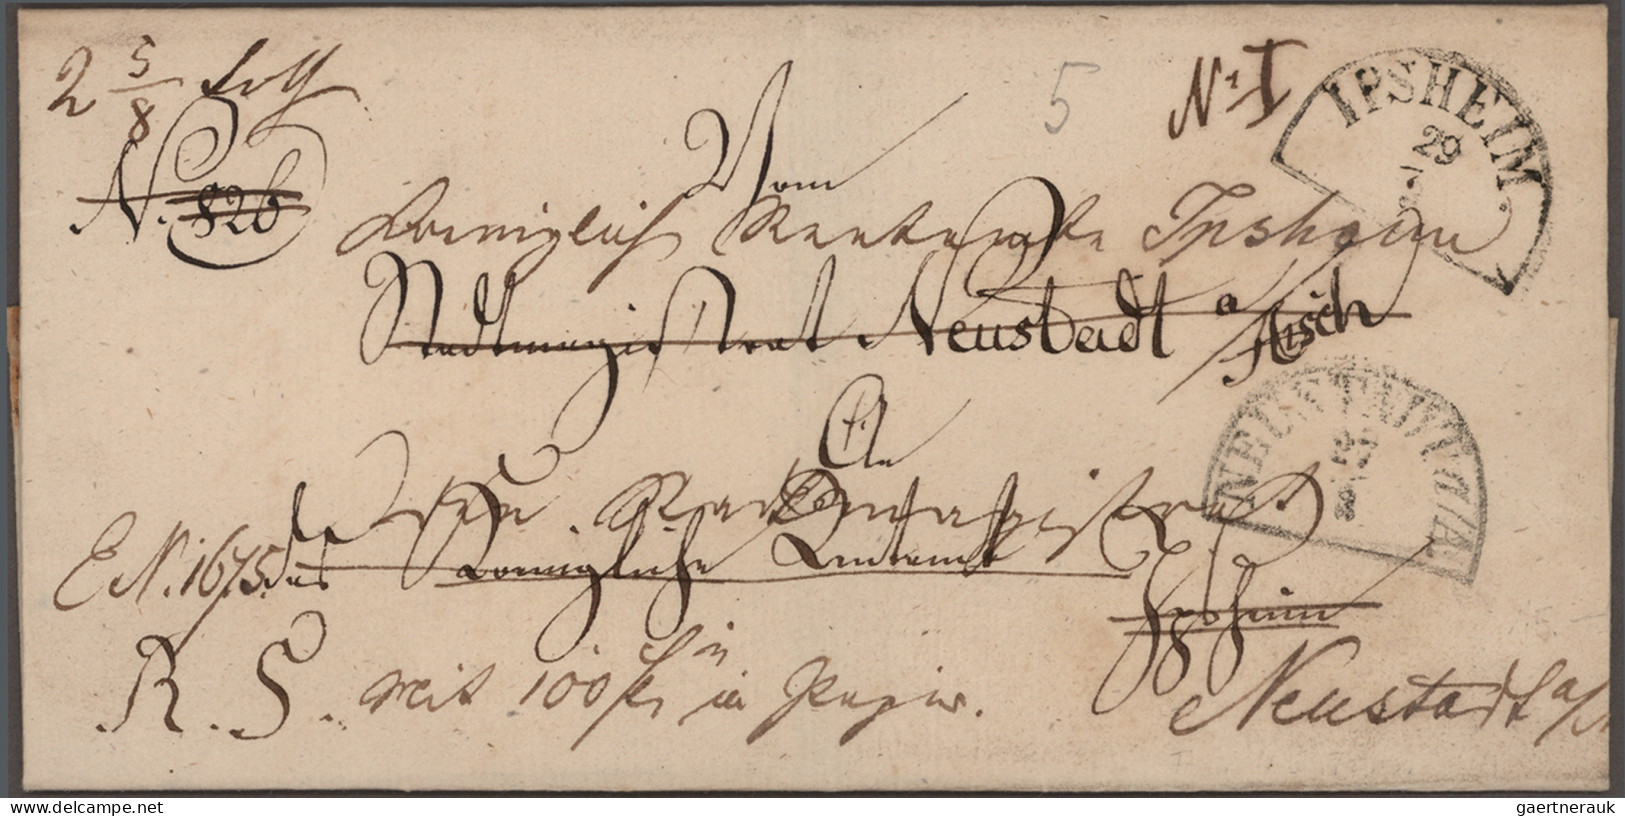 2 5/8 Loth
5
N 1 I
IPSHEIM
29
N. 826
Vom
Koeniglich Rentamte Ipsheim
Stadtmagistrat Neustadt a/Aisch
NEUSTADT A/A
An
den Stadtmagistrat
E N. 1675. das Koenigliche Rentamt
Ipsheim
R. S. mit 100 fl in Papier.
Neustadt a/
www.delcampe.net
gaertnerauk